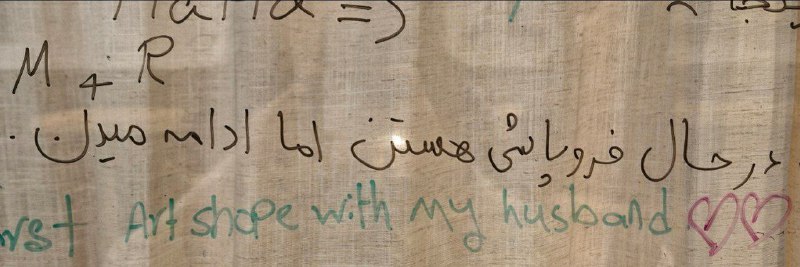 M + R
در حال فروپاشی هستن اما ادامه میدن.
Art shope with my husband